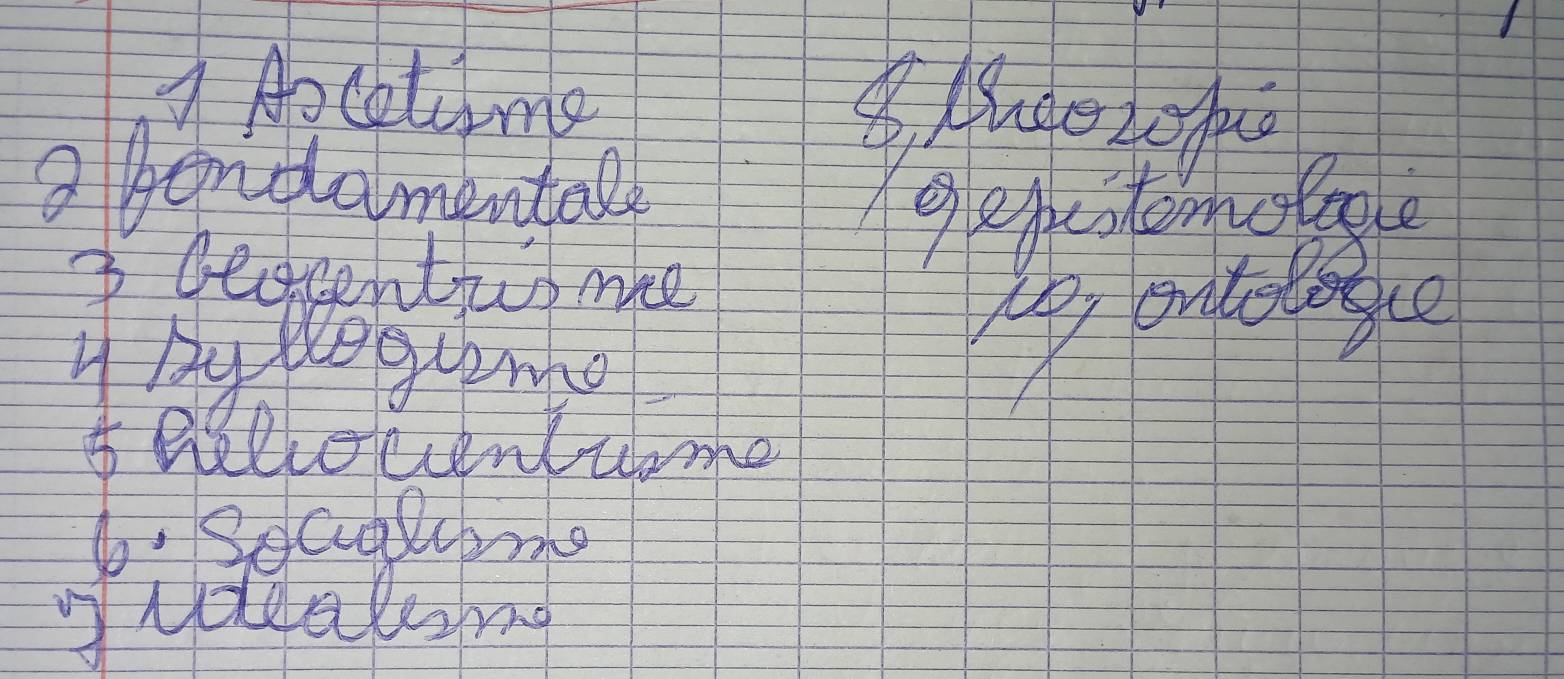 1 Ascetisme
2 fondamentale
3 Geocentrisme
4 syllogisme
5 heliocentrisme
6. Socialisme
7 idealisme
8, theozopie
9, epistemologie
10, ontologie